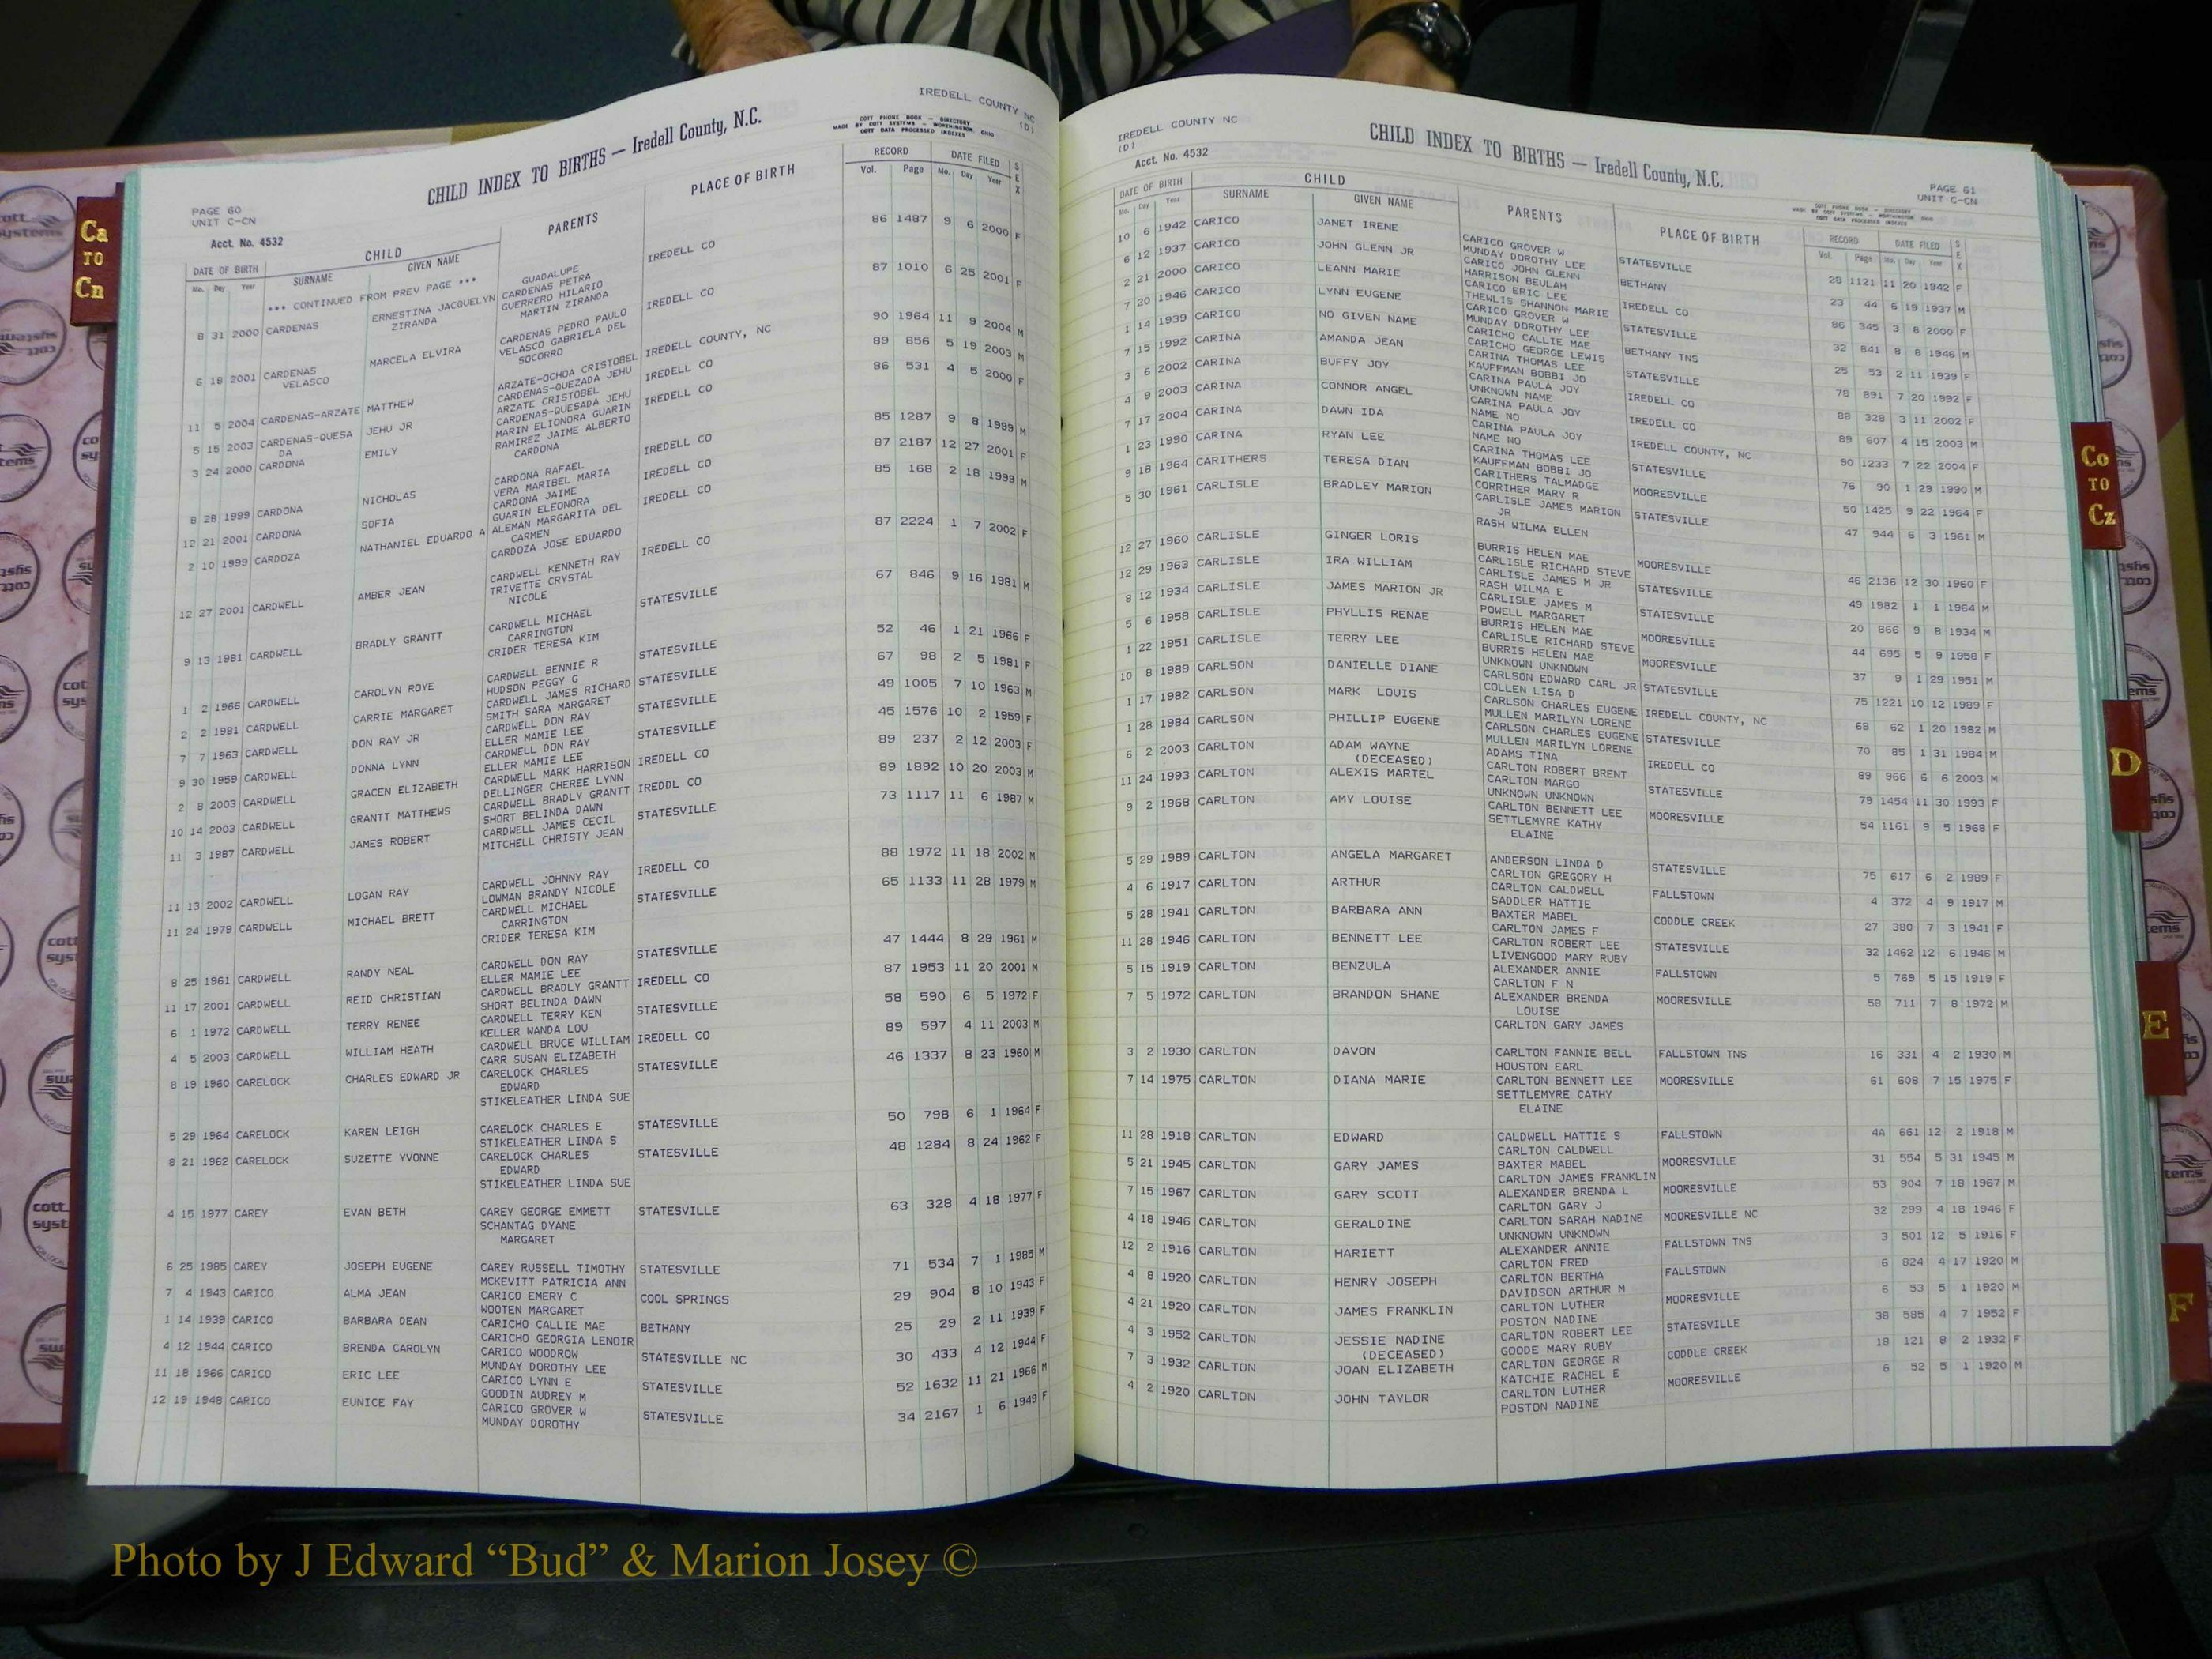 IREDELL COUNTY NC
(D)
CHILD INDEX TO BIRTHS — Iredell County, N.C.
COTT PHONE BOOK — DIRECTORY
MADE BY COTT SYSTEMS — WORTHINGTON, OHIO
COTT DATA PROCESSED INDEXES
PAGE 60
UNIT C-CN
Acct. No. 4532
DATE OF BIRTH CHILD PARENTS PLACE OF BIRTH RECORD DATE FILED SEX
Mo. Day Year SURNAME GIVEN NAME Vol. Page Mo. Day Year
*** CONTINUED FROM PREV PAGE ***
GUADALUPE
8 31 2000 CARDENAS ERNESTINA JACQUELYN CARDENAS PETRA IREDELL CO 86 1487 9 6 2000 F
ZIRANDA GUERRERO HILARIO
MARTIN ZIRANDA
6 18 2001 CARDENAS MARCELA ELVIRA CARDENAS PEDRO PAULO IREDELL CO 87 1010 6 25 2001 F
VELASCO VELASCO GABRIELA DEL
SOCORRO
11 5 2004 CARDENAS-ARZATE MATTHEW ARZATE-OCHOA CRISTOBEL IREDELL COUNTY, NC 90 1964 11 9 2004 M
CARDENAS-QUEZADA JEHU
5 15 2003 CARDENAS-QUESA JEHU JR ARZATE CRISTOBEL IREDELL CO 89 856 5 19 2003 M
DA CARDENAS-QUESADA JEHU
3 24 2000 CARDONA EMILY MARIN ELIONORA GUARIN IREDELL CO 86 531 4 5 2000 F
RAMIREZ JAIME ALBERTO
CARDONA
8 28 1999 CARDONA NICHOLAS CARDONA RAFAEL IREDELL CO 85 1287 9 8 1999 M
VERA MARIBEL MARIA
12 21 2001 CARDONA SOFIA CARDONA JAIME IREDELL CO 87 2187 12 27 2001 F
GUARIN ELEONORA
2 10 1999 CARDOZA NATHANIEL EDUARDO A ALEMAN MARGARITA DEL IREDELL CO 85 168 2 18 1999 M
CARMEN
CARDOZA JOSE EDUARDO
12 27 2001 CARDWELL AMBER JEAN CARDWELL KENNETH RAY IREDELL CO 87 2224 1 7 2002 F
TRIVETTE CRYSTAL
NICOLE
9 13 1981 CARDWELL BRADLY GRANTT CARDWELL MICHAEL STATESVILLE 67 846 9 16 1981 M
CARRINGTON
CRIDER TERESA KIM
1 2 1966 CARDWELL CAROLYN ROYE CARDWELL BENNIE R STATESVILLE 52 46 1 21 1966 F
HUDSON PEGGY G
2 2 1981 CARDWELL CARRIE MARGARET CARDWELL JAMES RICHARD STATESVILLE 67 98 2 5 1981 F
SMITH SARA MARGARET
7 7 1963 CARDWELL DON RAY JR CARDWELL DON RAY STATESVILLE 49 1005 7 10 1963 M
ELLER MAMIE LEE
9 30 1959 CARDWELL DONNA LYNN CARDWELL DON RAY STATESVILLE 45 1576 10 2 1959 F
ELLER MAMIE LEE
2 8 2003 CARDWELL GRACEN ELIZABETH CARDWELL MARK HARRISON IREDELL CO 89 237 2 12 2003 F
DELLINGER CHEREE LYNN
10 14 2003 CARDWELL GRANTT MATTHEWS CARDWELL BRADLY GRANTT IREDDL CO 89 1892 10 20 2003 M
SHORT BELINDA DAWN
11 3 1987 CARDWELL JAMES ROBERT CARDWELL JAMES CECIL STATESVILLE 73 1117 11 6 1987 M
MITCHELL CHRISTY JEAN
11 13 2002 CARDWELL LOGAN RAY CARDWELL JOHNNY RAY IREDELL CO 88 1972 11 18 2002 M
LOWMAN BRANDY NICOLE
11 24 1979 CARDWELL MICHAEL BRETT CARDWELL MICHAEL STATESVILLE 65 1133 11 28 1979 M
CARRINGTON
CRIDER TERESA KIM
8 25 1961 CARDWELL RANDY NEAL CARDWELL DON RAY STATESVILLE 47 1444 8 29 1961 M
ELLER MAMIE LEE
11 17 2001 CARDWELL REID CHRISTIAN CARDWELL BRADLY GRANTT IREDELL CO 87 1953 11 20 2001 M
SHORT BELINDA DAWN
6 1 1972 CARDWELL TERRY RENEE CARDWELL TERRY KEN STATESVILLE 58 590 6 5 1972 F
KELLER WANDA LOU
4 5 2003 CARDWELL WILLIAM HEATH CARDWELL BRUCE WILLIAM IREDELL CO 89 597 4 11 2003 M
CARR SUSAN ELIZABETH
8 19 1960 CARELOCK CHARLES EDWARD JR CARELOCK CHARLES STATESVILLE 46 1337 8 23 1960 M
EDWARD
STIKELEATHER LINDA SUE
5 29 1964 CARELOCK KAREN LEIGH CARELOCK CHARLES E STATESVILLE 50 798 6 1 1964 F
STIKELEATHER LINDA S
8 21 1962 CARELOCK SUZETTE YVONNE CARELOCK CHARLES STATESVILLE 48 1284 8 24 1962 F
EDWARD
STIKELEATHER LINDA SUE
4 15 1977 CAREY EVAN BETH CAREY GEORGE EMMETT STATESVILLE 63 328 4 18 1977 F
SCHANTAG DYANE
MARGARET
6 25 1985 CAREY JOSEPH EUGENE CAREY RUSSELL TIMOTHY STATESVILLE 71 534 7 1 1985 M
MCKEVITT PATRICIA ANN
7 4 1943 CARICO ALMA JEAN CARICO EMERY C COOL SPRINGS 29 904 8 10 1943 F
WOOTEN MARGARET
1 14 1939 CARICO BARBARA DEAN CARICHO CALLIE MAE BETHANY 25 29 2 11 1939 F
CARICHO GEORGIA LENOIR
4 12 1944 CARICO BRENDA CAROLYN CARICO WOODROW STATESVILLE NC 30 433 4 12 1944 F
MUNDAY DOROTHY LEE
11 18 1966 CARICO ERIC LEE CARICO LYNN E STATESVILLE 52 1632 11 21 1966 M
GOODIN AUDREY M
12 19 1948 CARICO EUNICE FAY CARICO GROVER W STATESVILLE 34 2167 1 6 1949 F
MUNDAY DOROTHY
IREDELL COUNTY NC
(D)
Acct. No. 4532
CHILD INDEX TO BIRTHS — Iredell County, N.C.
PAGE 61
UNIT C-CN
COTT PHONE BOOK — DIRECTORY
MADE BY COTT SYSTEMS — WORTHINGTON, OHIO
COTT DATA PROCESSED INDEXES
DATE OF BIRTH CHILD PARENTS PLACE OF BIRTH RECORD DATE FILED SEX
Mo. Day Year SURNAME GIVEN NAME Vol. Page Mo. Day Year
10 6 1942 CARICO JANET IRENE CARICO GROVER W STATESVILLE 28 1121 11 20 1942 F
MUNDAY DOROTHY LEE
6 12 1937 CARICO JOHN GLENN JR CARICO JOHN GLENN BETHANY 23 44 6 19 1937 M
HARRISON BEULAH
2 21 2000 CARICO LEANN MARIE CARICO ERIC LEE IREDELL CO 86 345 3 8 2000 F
THEWLIS SHANNON MARIE
7 20 1946 CARICO LYNN EUGENE CARICO GROVER W STATESVILLE 32 841 8 8 1946 M
MUNDAY DOROTHY LEE
1 14 1939 CARICO NO GIVEN NAME CARICHO CALLIE MAE BETHANY TNS 25 53 2 11 1939 F
CARICHO GEORGE LEWIS
7 15 1992 CARINA AMANDA JEAN CARINA THOMAS LEE STATESVILLE 78 891 7 20 1992 F
KAUFFMAN BOBBI JO
3 6 2002 CARINA BUFFY JOY CARINA PAULA JOY IREDELL CO 88 328 3 11 2002 F
UNKNOWN NAME
4 9 2003 CARINA CONNOR ANGEL CARINA PAULA JOY IREDELL CO 89 607 4 15 2003 M
NAME NO
7 17 2004 CARINA DAWN IDA CARINA PAULA JOY IREDELL COUNTY, NC 90 1233 7 22 2004 F
NAME NO
1 23 1990 CARINA RYAN LEE CARINA THOMAS LEE STATESVILLE 76 90 1 29 1990 M
KAUFFMAN BOBBI JO
9 18 1964 CARITHERS TERESA DIAN CARITHERS TALMADGE MOORESVILLE 50 1425 9 22 1964 F
CORRIHER MARY R
5 30 1961 CARLISLE BRADLEY MARION CARLISLE JAMES MARION STATESVILLE 47 944 6 3 1961 M
JR
RASH WILMA ELLEN
12 27 1960 CARLISLE GINGER LORIS BURRIS HELEN MAE MOORESVILLE 46 2136 12 30 1960 F
CARLISLE RICHARD STEVE
12 29 1963 CARLISLE IRA WILLIAM CARLISLE JAMES M JR STATESVILLE 49 1982 1 1 1964 M
RASH WILMA E
8 12 1934 CARLISLE JAMES MARION JR CARLISLE JAMES M STATESVILLE 20 866 9 8 1934 M
POWELL MARGARET
5 6 1958 CARLISLE PHYLLIS RENAE BURRIS HELEN MAE MOORESVILLE 44 695 5 9 1958 F
CARLISLE RICHARD STEVE
1 22 1951 CARLISLE TERRY LEE BURRIS HELEN MAE MOORESVILLE 37 9 1 29 1951 M
UNKNOWN UNKNOWN
10 8 1989 CARLSON DANIELLE DIANE CARLSON EDWARD CARL JR STATESVILLE 75 1221 10 12 1989 F
COLLEN LISA D
1 17 1982 CARLSON MARK LOUIS CARLSON CHARLES EUGENE IREDELL COUNTY, NC 68 62 1 20 1982 M
MULLEN MARILYN LORENE
1 28 1984 CARLSON PHILLIP EUGENE CARLSON CHARLES EUGENE STATESVILLE 70 85 1 31 1984 M
MULLEN MARILYN LORENE
6 2 2003 CARLTON ADAM WAYNE ADAMS TINA IREDELL CO 89 966 6 6 2003 M
(DECEASED) CARLTON ROBERT BRENT
11 24 1993 CARLTON ALEXIS MARTEL CARLTON MARGO STATESVILLE 79 1454 11 30 1993 F
UNKNOWN UNKNOWN
9 2 1968 CARLTON AMY LOUISE CARLTON BENNETT LEE MOORESVILLE 54 1161 9 5 1968 F
SETTLEMYRE KATHY
ELAINE
5 29 1989 CARLTON ANGELA MARGARET ANDERSON LINDA D STATESVILLE 75 617 6 2 1989 F
CARLTON GREGORY H
4 6 1917 CARLTON ARTHUR CARLTON CALDWELL FALLSTOWN 4 372 4 9 1917 M
SADDLER HATTIE
5 28 1941 CARLTON BARBARA ANN BAXTER MABEL CODDLE CREEK 27 380 7 3 1941 F
CARLTON JAMES F
11 28 1946 CARLTON BENNETT LEE CARLTON ROBERT LEE STATESVILLE 32 1462 12 6 1946 M
LIVENGOOD MARY RUBY
5 15 1919 CARLTON BENZULA ALEXANDER ANNIE FALLSTOWN 5 769 5 15 1919 F
CARLTON F N
7 5 1972 CARLTON BRANDON SHANE ALEXANDER BRENDA MOORESVILLE 58 711 7 8 1972 M
LOUISE
CARLTON GARY JAMES
3 2 1930 CARLTON DAVON CARLTON FANNIE BELL FALLSTOWN TNS 16 331 4 2 1930 M
HOUSTON EARL
7 14 1975 CARLTON DIANA MARIE CARLTON BENNETT LEE MOORESVILLE 61 608 7 15 1975 F
SETTLEMYRE CATHY
ELAINE
11 28 1918 CARLTON EDWARD CALDWELL HATTIE S FALLSTOWN 4A 661 12 2 1918 M
CARLTON CALDWELL
5 21 1945 CARLTON GARY JAMES BAXTER MABEL MOORESVILLE 31 554 5 31 1945 M
CARLTON JAMES FRANKLIN
7 15 1967 CARLTON GARY SCOTT ALEXANDER BRENDA L MOORESVILLE 53 904 7 18 1967 M
CARLTON GARY J
4 18 1946 CARLTON GERALDINE CARLTON SARAH NADINE MOORESVILLE NC 32 299 4 18 1946 F
UNKNOWN UNKNOWN
12 2 1916 CARLTON HARIETT ALEXANDER ANNIE FALLSTOWN TNS 3 501 12 5 1916 F
CARLTON FRED
4 8 1920 CARLTON HENRY JOSEPH CARLTON BERTHA FALLSTOWN 6 824 4 17 1920 M
DAVIDSON ARTHUR M
4 21 1920 CARLTON JAMES FRANKLIN CARLTON LUTHER MOORESVILLE 6 53 5 1 1920 M
POSTON NADINE
4 3 1952 CARLTON JESSIE NADINE CARLTON ROBERT LEE STATESVILLE 38 585 4 7 1952 F
(DECEASED) GOODE MARY RUBY
7 3 1932 CARLTON JOAN ELIZABETH CARLTON GEORGE R CODDLE CREEK 18 121 8 2 1932 F
KATCHIE RACHEL E
4 2 1920 CARLTON JOHN TAYLOR CARLTON LUTHER MOORESVILLE 6 52 5 1 1920 M
POSTON NADINE
Ca
TO
Cn
Co
TO
Cz
D
E
F
Photo by J Edward “Bud” & Marion Josey ©